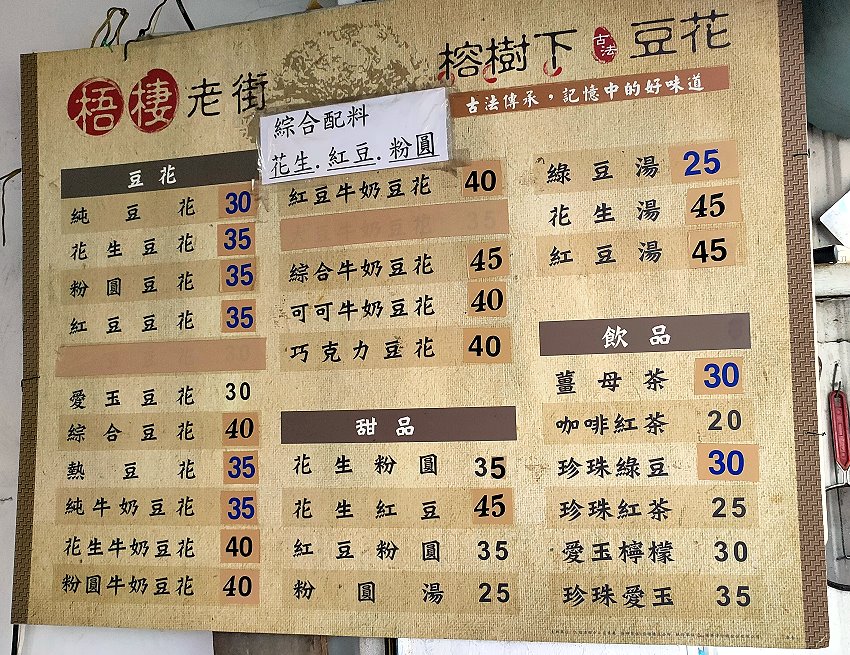 梧棲老街
榕樹下古法豆花
古法傳承，記憶中的好味道
綜合配料
花生.紅豆.粉圓
豆花
純豆花 30
花生豆花 35
粉圓豆花 35
紅豆豆花 35
愛玉豆花 30
綜合豆花 40
熱豆花 35
純牛奶豆花 35
花生牛奶豆花 40
粉圓牛奶豆花 40
紅豆牛奶豆花 40
綜合牛奶豆花 45
可可牛奶豆花 40
巧克力豆花 40
甜品
花生粉圓 35
花生紅豆 45
紅豆粉圓 35
粉圓湯 25
綠豆湯 25
花生湯 45
紅豆湯 45
飲品
薑母茶 30
咖啡紅茶 20
珍珠綠豆 30
珍珠紅茶 25
愛玉檸檬 30
珍珠愛玉 35